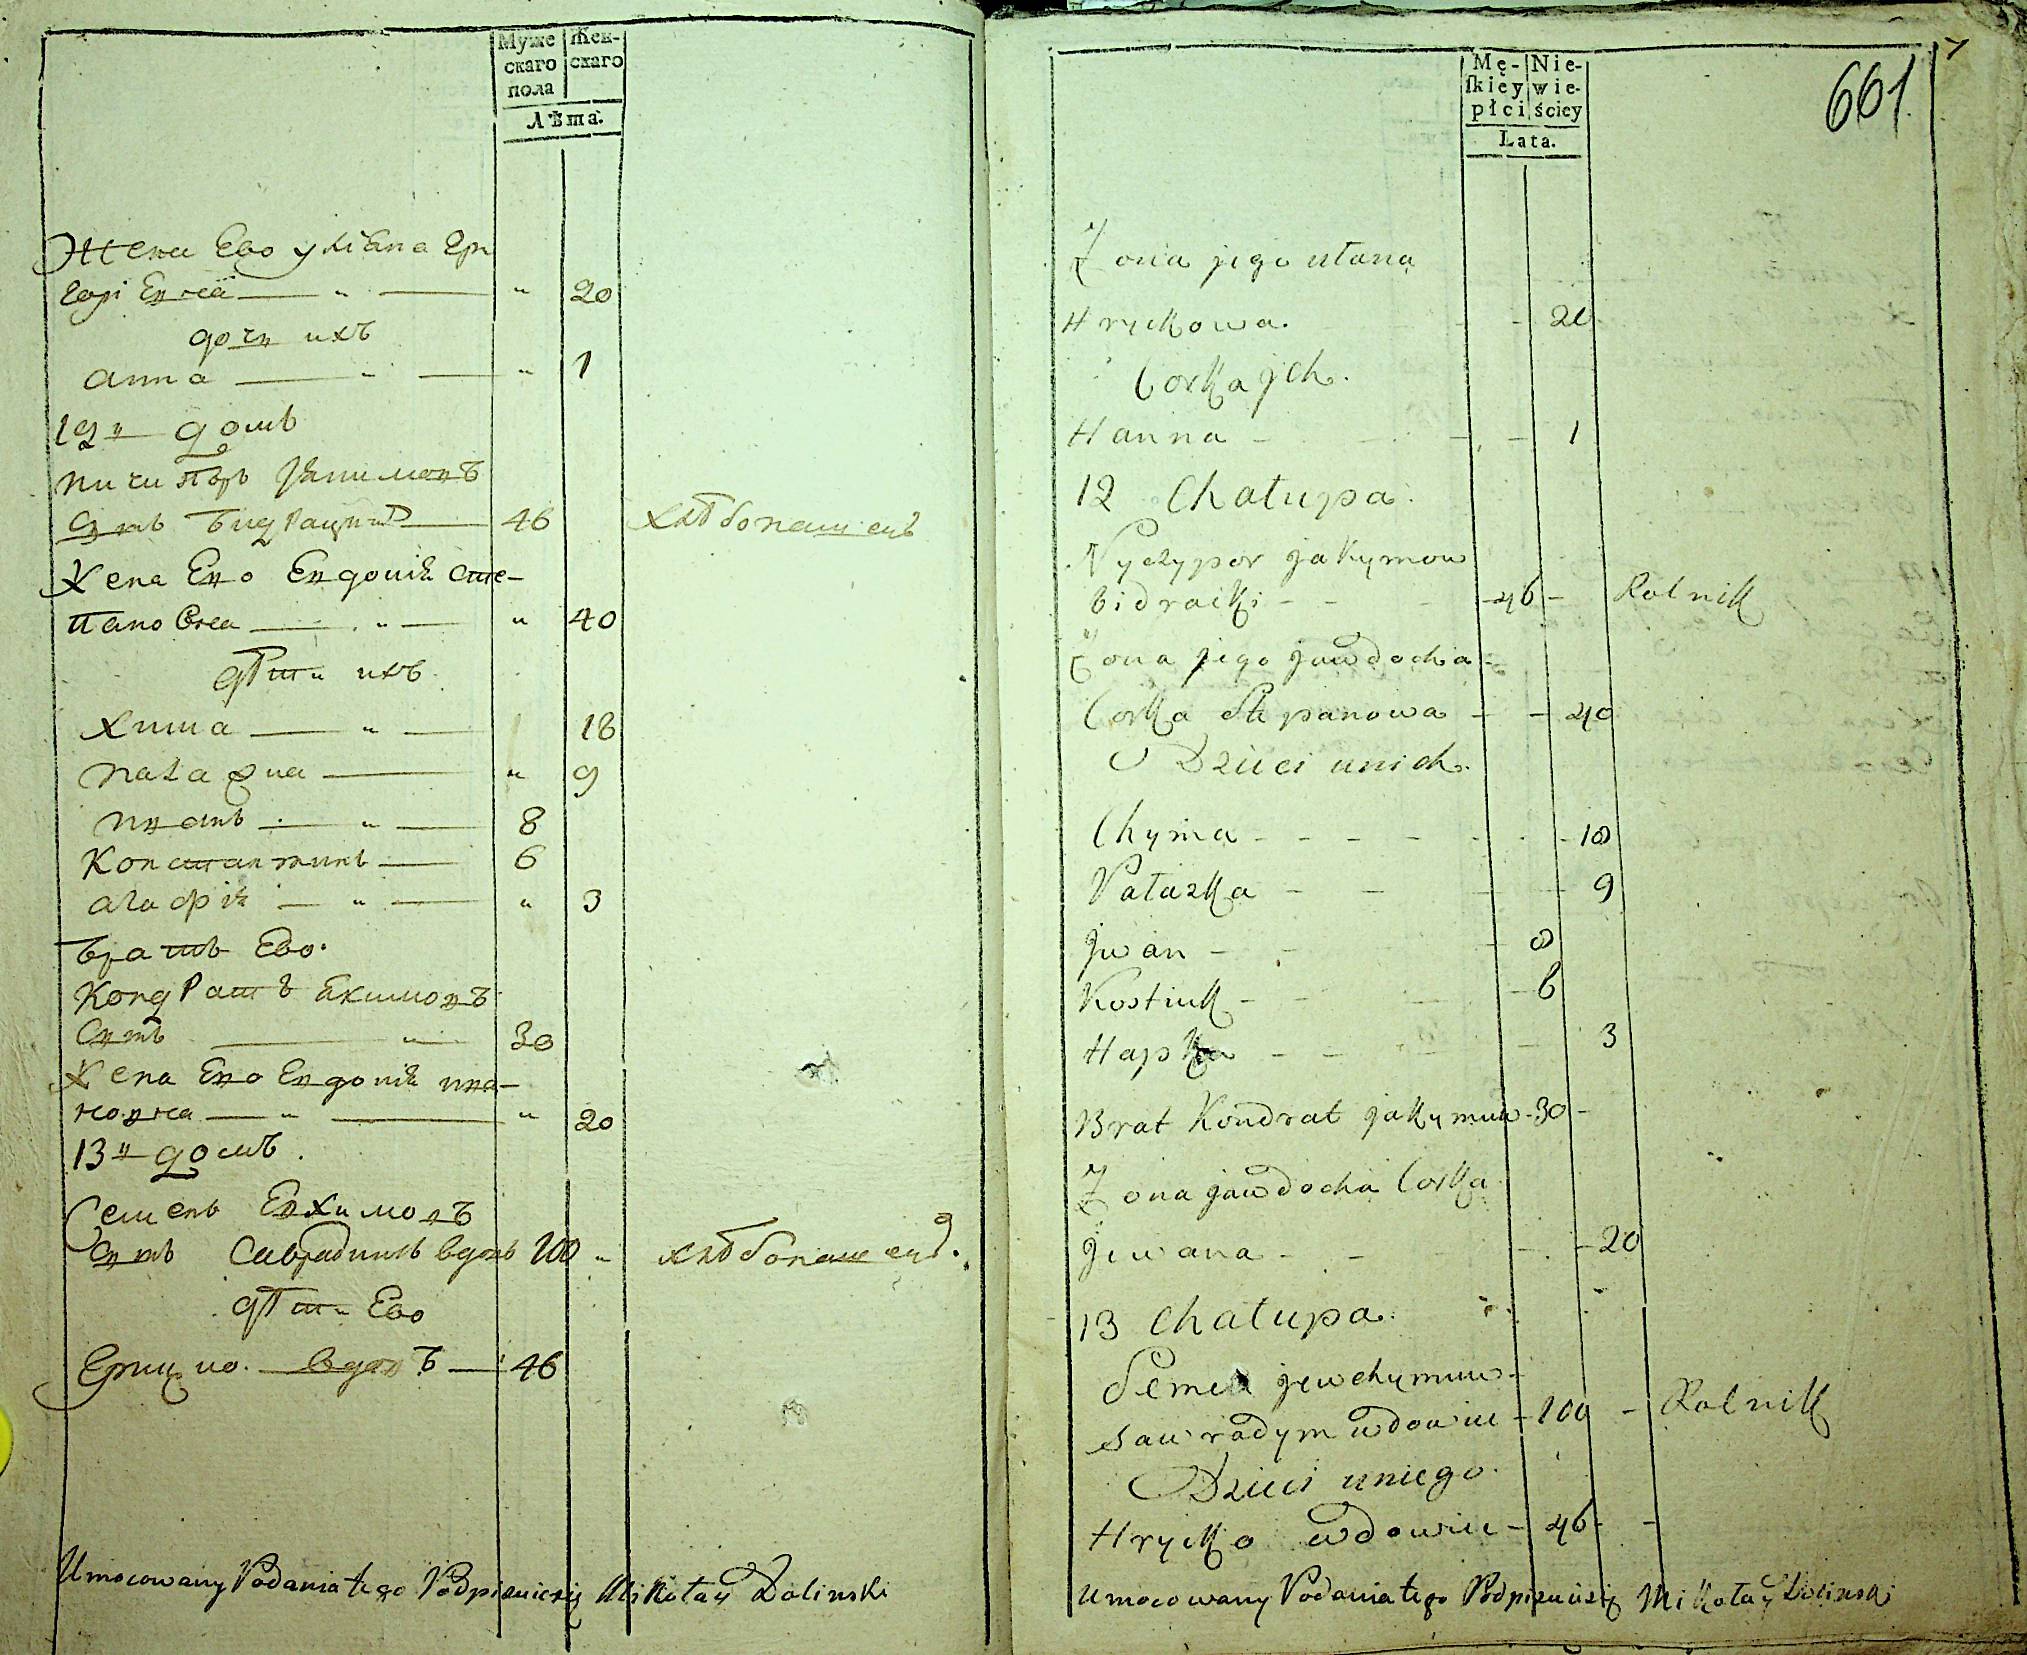 Муже
скаго
пола
Жен-
скаго
Лѣта.
Жена Ево улiвна Гри
20
дочь ихъ
анна " " 1
12й домъ
ничипѣръ
сынъ 46 хлѣбопашецъ
Жена Ево Евдокiя сте-
панова " " 40
дѣти ихъ
хима " 18
наталка " 9
иванъ " 8
Константинъ 6
агафiя " " 3
братъ Ево.
Кондратъ Якимовъ
сынъ " 30
Жена Ево Евдокiя ива-
нова " " 20
13й домъ.
Семенъ Евхимовъ
сынъ Саврадимъ вдовъ 100 " хлѣбопашецъ.
дѣти Ево
Грицко. вдовъ 46
Umocowany Podania tego Podpisuię się Mikołay Dolinski
661
Mę-
skiey
płci
Nie-
wie-
ściey
Lata.
Zona jego ulana
Hryckowa. 20
Corka jch.
Hanna 1
12 Chałupa.
Nyczypor jakymow
bidracki 46 Rolnik
Zona jego jawdocha
Corka Stepanowa 40
Dzieci unich.
Chyma 18
Natałka 9
jwan 8
Kostiuk 6
Hapka 3
Brat Kondrat jakymow 30
Zona jawdocha Corka
jewana 20
13 Chałupa.
Semen jewchymow
Sawradym wdowiec 100 Rolnik
Dzieci uniego.
Hrycko wdowiec 46
Umocowany Podania tego Podpisuię się Mikołay Dolinski